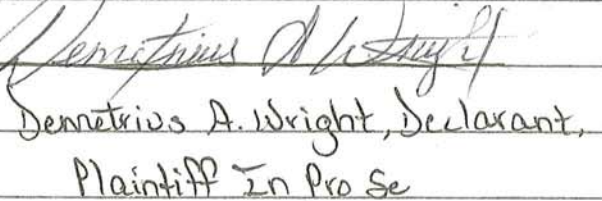 Demetrius A Wright
Demetrius A. Wright, Declarant,
Plaintiff In Pro Se